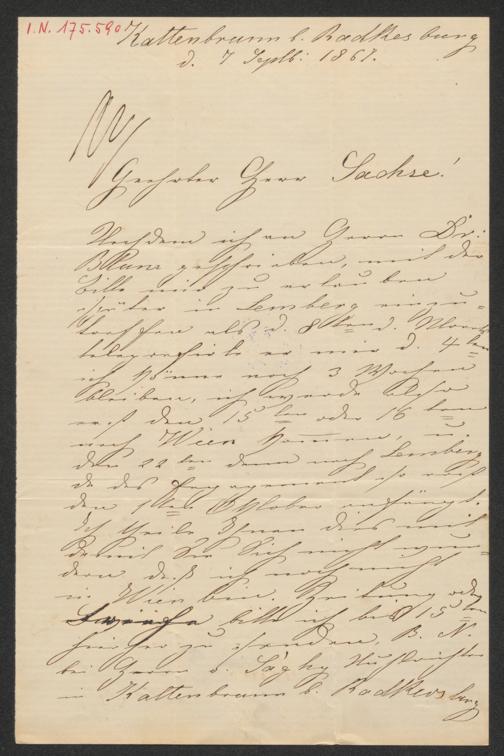 I.N. 175.590
Kaltenbrunn b. Radkersburg
d. 7 Septb: 1861.
Geehrter Herr Sachse!
Nachdem ich an Herrn Dr:
geschrieben, mit der
Bitte mir zu erlauben
später in Lemberg einzu-
treffen als d. 8ten d. Monats
telegrafirte er mir d. 4ten
ich könne noch 3 Wochen
bleiben, ich werde also
erst den 15ten oder 16ten
nach Wien kommen, u.
den 22ten dann nach Lemberg
da das Engagement so erst
den 1ten Oktober anfängt.
Ich theile Ihnen dies mit
damit Sie Sich nicht wun-
dern daß ich noch nicht
in Wien bin. Zeitung oder
bitte ich bis 15ten
hierher zu senden. B. N.
bei Herrn v.
in Kaltenbrunn b. Radkersburg